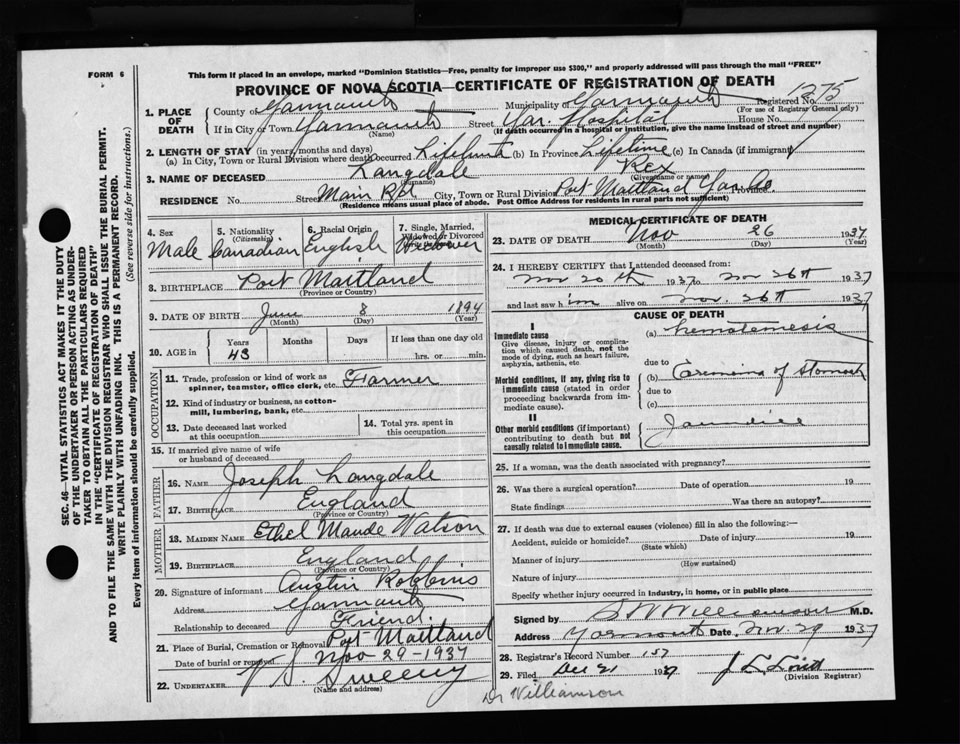 FORM 6
This form if placed in an envelope, marked "Dominion Statistics—Free, penalty for improper use $300," and properly addressed will pass through the mail "FREE"
PROVINCE OF NOVA SCOTIA—CERTIFICATE OF REGISTRATION OF DEATH
1275
Registered No.
(For use of Registrar General only)
1. PLACE OF DEATH
County of Yarmouth Municipality of Yarmouth
If in City or Town Yarmouth Street Yar. Hospital House No.
(Name) (If death occurred in a hospital or institution, give the name instead of street and number)
2. LENGTH OF STAY (in years, months and days)
(a) In City, Town or Rural Division where death occurred Lifetime (b) In Province Lifetime (c) In Canada (if immigrant)
3. NAME OF DECEASED Langdale Rex
(Surname) (Given name or names)
RESIDENCE No. Street Main Rd City, Town or Rural Division Port Maitland Yar. Co Province
(Residence means usual place of abode. Post Office Address for residents in rural parts not sufficient)
4. Sex
Male
5. Nationality
(Citizenship)
Canadian
6. Racial Origin
English
7. Single, Married,
Widowed or Divorced
Widower
8. BIRTHPLACE Port Maitland
(Province or Country)
9. DATE OF BIRTH June 8 1894
(Month) (Day) (Year)
10. AGE in Years Months Days If less than one day old
43 hrs. or min.
OCCUPATION
11. Trade, profession or kind of work as
spinner, teamster, office clerk, etc. Farmer
12. Kind of industry or business, as cotton-
mill, lumbering, bank, etc.
13. Date deceased last worked
at this occupation
14. Total yrs. spent in
this occupation
15. If married give name of wife
or husband of deceased
FATHER
16. NAME Joseph Langdale
17. BIRTHPLACE England
(Province or Country)
MOTHER
18. MAIDEN NAME Ethel Maude Watson
19. BIRTHPLACE England
(Province or Country)
20. Signature of informant Austin Robbins
Address Yarmouth
Relationship to deceased Friend.
21. Place of Burial, Cremation or Removal Port Maitland
Date of burial or removal Nov 29-1937
22. UNDERTAKER V. S. Sweeny
(Name and address)
MEDICAL CERTIFICATE OF DEATH
23. DATE OF DEATH Nov 26 1937
(Month) (Day) (Year)
24. I HEREBY CERTIFY that I attended deceased from:
Nov 20th 1937 to Nov 26th 1937
and last saw him alive on Nov. 26th 1937
CAUSE OF DEATH
I
Immediate cause
Give disease, injury or complica-
tion which caused death, not the
mode of dying, such as heart failure,
asphyxia, asthenia, etc.
(a) Hematemesis
due to
Morbid conditions, if any, giving rise to
immediate cause (stated in order
proceeding backwards from im-
mediate cause).
(b) Carcinoma of Stomach
due to
(c)
II
Other morbid conditions (if important)
contributing to death but not
causally related to immediate cause.
Jaundice
25. If a woman, was the death associated with pregnancy?
26. Was there a surgical operation? Date of operation 19
State findings Was there an autopsy?
27. If death was due to external causes (violence) fill in also the following:—
Accident, suicide or homicide? Date of injury 19
(State which)
Manner of injury
(How sustained)
Nature of injury
Specify whether injury occurred in industry, in home, or in public place
Signed by S W Williamson M.D.
Address Yarmouth Date Nov. 29 1937
28. Registrar's Record Number 157
29. Filed Dec 21 1937
(Division Registrar)
Dr Williamson
SEC. 46—VITAL STATISTICS ACT MAKES IT THE DUTY
OF THE UNDERTAKER OR PERSON ACTING AS UNDER-
TAKER TO OBTAIN ALL THE PARTICULARS REQUIRED
IN THE "CERTIFICATE OF REGISTRATION OF DEATH"
AND TO FILE THE SAME WITH THE DIVISION REGISTRAR WHO SHALL ISSUE THE BURIAL PERMIT.
WRITE PLAINLY WITH UNFADING INK. THIS IS A PERMANENT RECORD.
Every item of information should be carefully supplied. (See reverse side for instructions.)